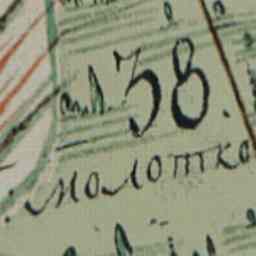 38.
молотко